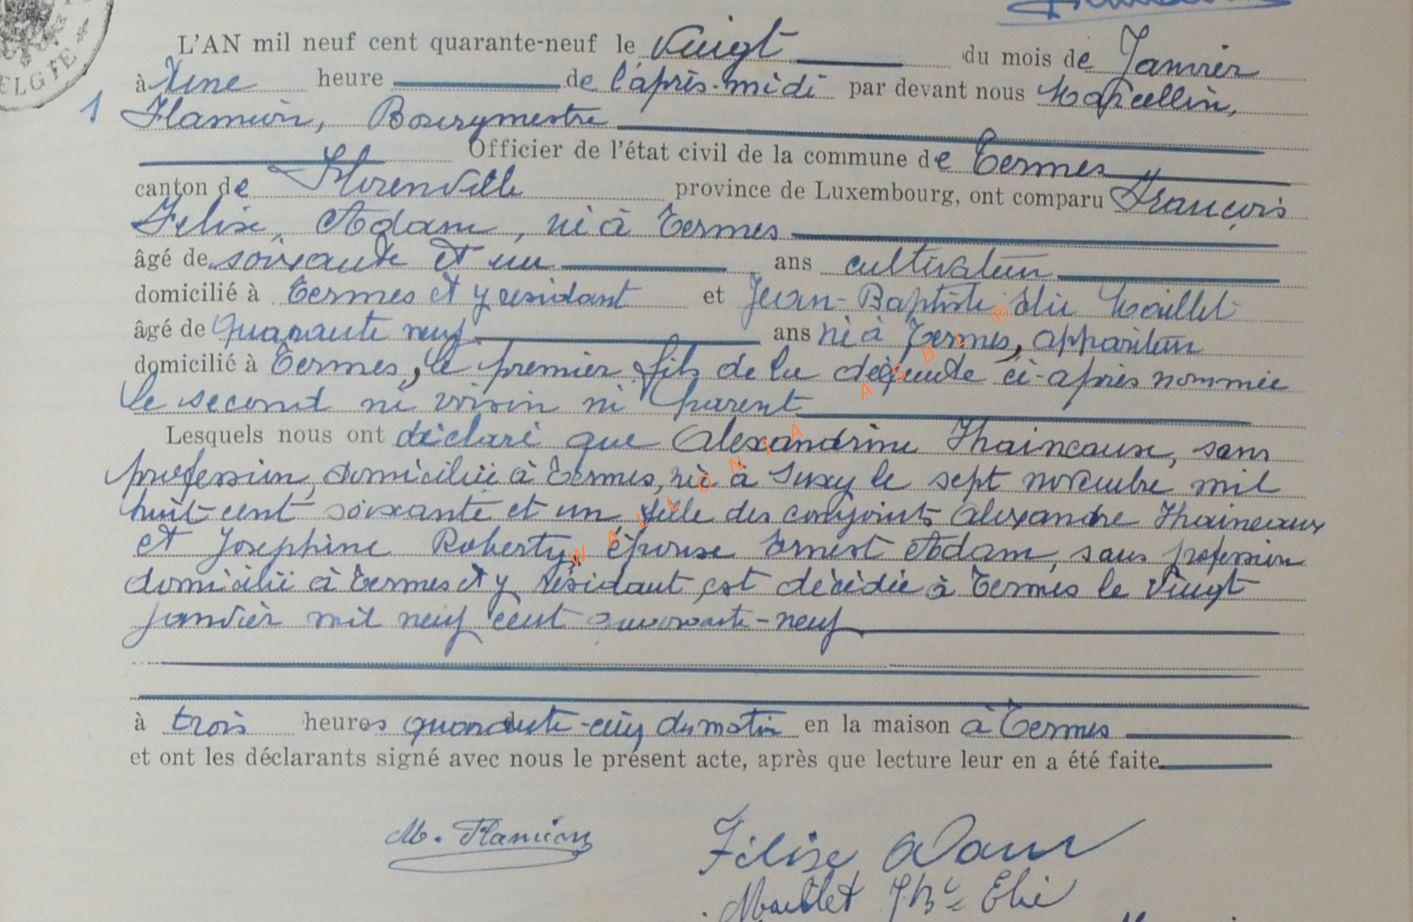 ELGIE
L'AN mil neuf cent quarante-neuf le vingt du mois de Janvier
à Une heure de l'après-midi par devant nous Marcellin,
1 Flamion, Bourgmestre
Officier de l'état civil de la commune de Termes
canton de Florenville province de Luxembourg, ont comparu François
Felix, Adam, né à Termes
âgé de soixante et un ans cultivateur
domicilié à Termes et y résidant et Jean-Baptiste Elie Maillet
âgé de quarante neuf ans né à Termes, appariteur
domicilié à Termes, le premier fils de la défunte ci-après nommée
le second ni voisin ni parent
Lesquels nous ont déclaré que Alexandrine Thaineaux, sans
profession, domiciliée à Termes, née à Suxy le sept novembre mil
huit cent soixante et un, fille des conjoints Alexandre Thaineaux
et Joséphine Roberty, épouse Ernest Adam, sans profession
domicilié à Termes et y résidant, est décédée à Termes le vingt
janvier mil neuf cent quarante-neuf
à trois heures quarante-cinq du matin en la maison à Termes
et ont les déclarants signé avec nous le présent acte, après que lecture leur en a été faite
M. Flamion
Félix Adam
Maillet J Bte Elie
WALLONIA ASBL ®